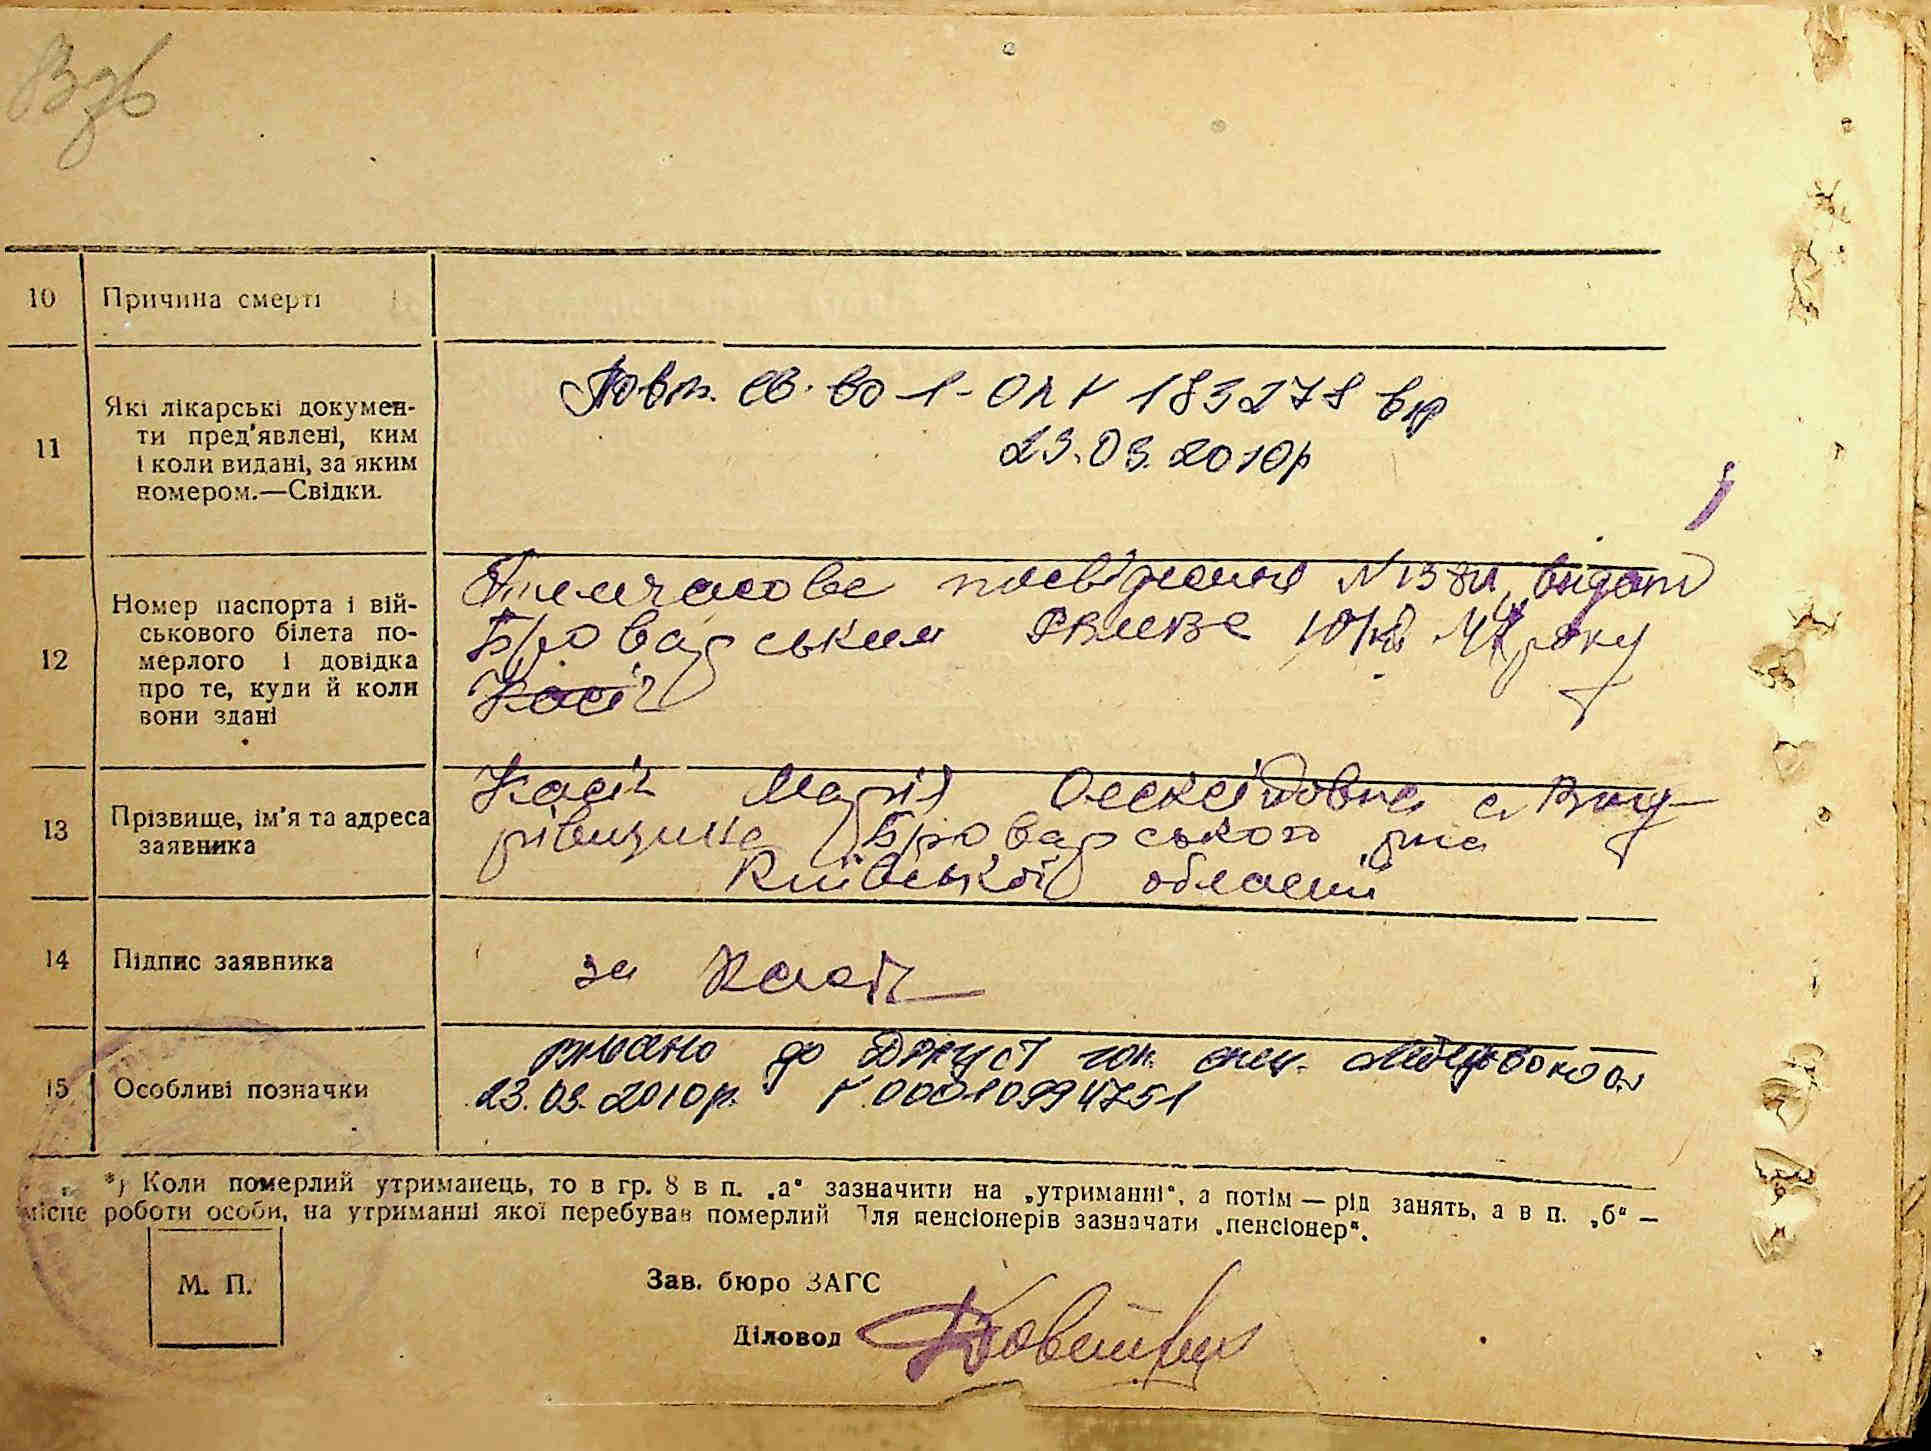 10 Причина смерті
11 Які лікарські докумен-
ти пред'явлені, ким
і коли видані, за яким
номером.—Свідки.
Повт. св. во 1-ОЛК 183278 від
23.03.2010р
12 Номер паспорта і вій-
ськового білета по-
мерлого і довідка
про те, куди й коли
вони здані
Тимчасове посвідчення видані
Броварським року
Касіч
13 Прізвище, ім'я та адреса
заявника
Касіч Марія Олексіївна с.
Броварського р-на
Київської області
14 Підпис заявника
за Касіч
15 Особливі позначки
до
23.03.2010р. 00010994751
*) Коли померлий утриманець, то в гр. 8 в п. „а" зазначити на „утриманні", а потім — рід занять, а в п. „б" —
місце роботи особи, на утриманні якої перебував померлий Для пенсіонерів зазначати „пенсіонер".
М. П.
Зав. бюро ЗАГС
Діловод